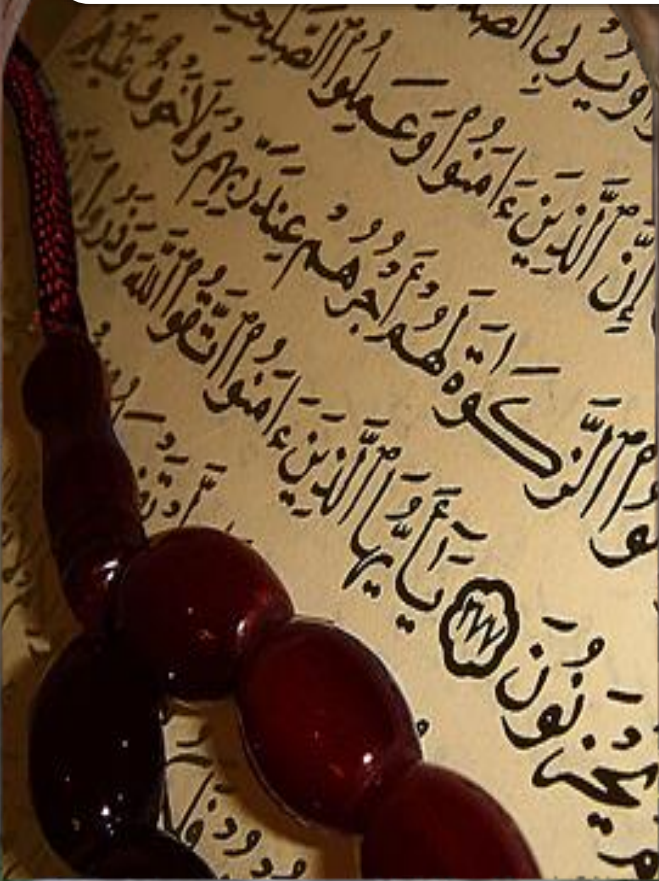 وَيُرْبِى ٱلصَّدَ
إِنَّ ٱلَّذِينَ ءَامَنُوا۟ وَعَمِلُوا۟ ٱلصَّٰلِحَٰتِ
ٱلزَّكَوٰةَ لَهُمْ أَجْرُهُمْ عِندَ رَبِّهِمْ وَلَا خَوْفٌ عَلَيْ
يَحْزَنُونَ ٢٧٧ يَٰٓأَيُّهَا ٱلَّذِينَ ءَامَنُوا۟ ٱتَّقُوا۟ ٱللَّهَ وَذَرُوا۟